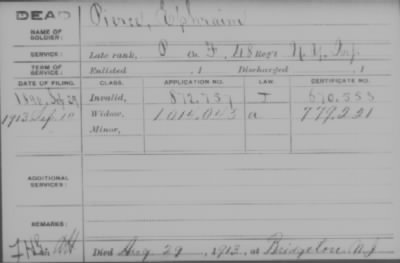 DEAD
NAME OF SOLDIER: Pierce, Ephraim
SERVICE: Late rank, P Co. F, 48 Reg't N.Y. Inf.
TERM OF SERVICE: Enlisted , 1 Discharged , 1
DATE OF FILING. CLASS. APPLICATION NO. LAW. CERTIFICATE NO.
1890, Invalid, 872.757 J 670.553
1913 Sep 10 Widow, 1014.043 a 779.221
Minor,
ADDITIONAL SERVICES:
REMARKS:
Died Aug 29, 1913, at Bridgeton N.J.